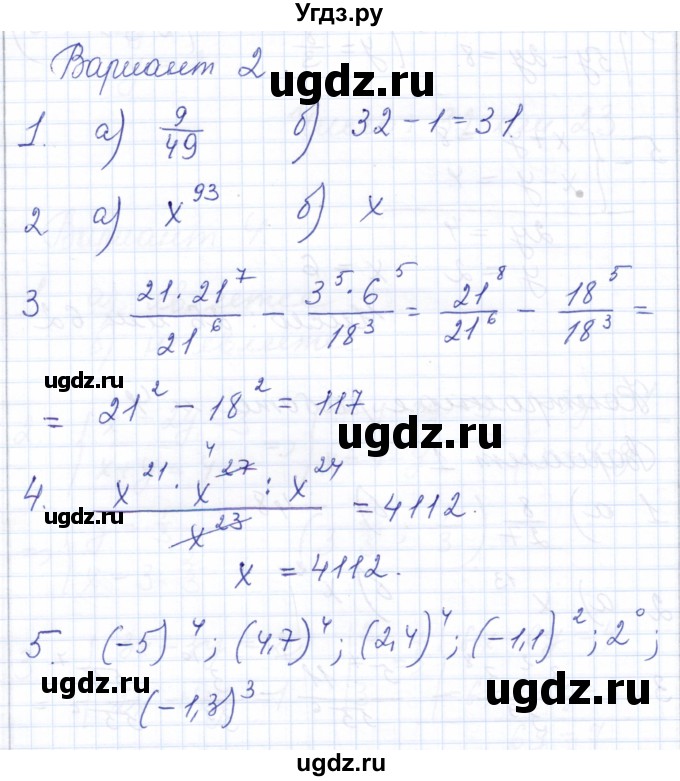 Угдз.ру
Вариант 2
ugdz.ru
1. а) 9/49 б) 32 - 1 = 31.
ugdz.ru
2 а) x^93 б) x
ugdz.ru
3 (21 · 21^7)/21^6 - (3^5 · 6^5)/18^3 = 21^8/21^6 - 18^5/18^3 =
ugdz.ru
= 21^2 - 18^2 = 117
ugdz.ru
4. (x^21 · x^27 : x^24)/x^23 = 4112.
4
ugdz.ru
x = 4112.
5. (-5)^4; (4,7)^4; (2,4)^4; (-1,1)^2; 2^0;
ugdz.ru
ugdz.ru
(-1,3)^3
ugdz.ru
ugdz.ru